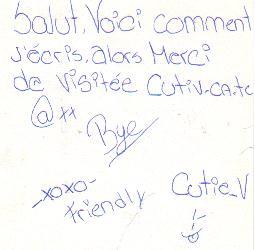 Salut, Voici comment
j'écris, alors Merci
de visitée Cutiv-ca.tc
@++
Bye
-xoxo-
Friendly
Cutie_V